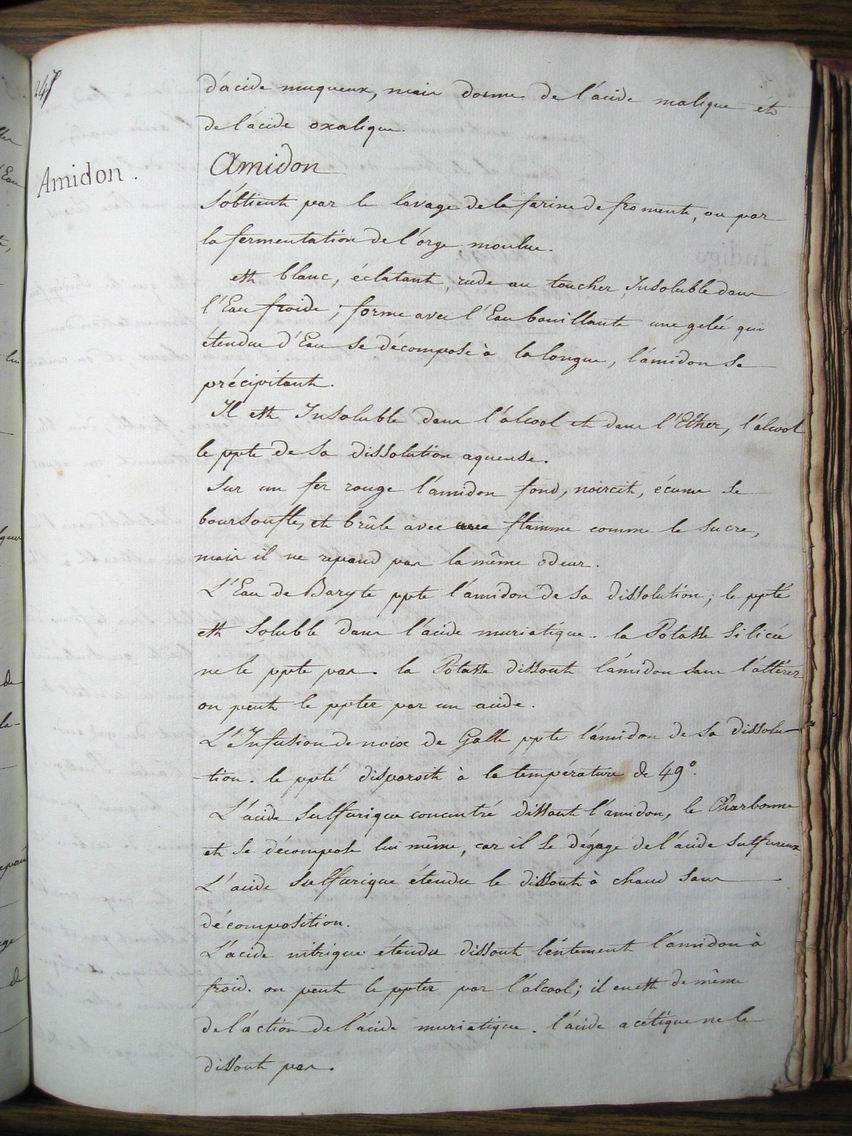 247
d'acide muqueux, mais donne de l'acide malique et
de l'acide oxalique.
Amidon.
Amidon
S'obtient par le lavage de la farine de froment, ou par
la fermentation de l'orge moulue.
est blanc, éclatant, rude au toucher, Insoluble dans
l'Eau froide; forme avec l'Eau bouillante une gelée qui
étendue d'Eau se décompose à la longue, l'amidon se
précipitant.
Il est Insoluble dans l'alcool et dans l'Ether, l'alcool
le ppte de sa dissolution aqueuse.
Sur un fer rouge l'amidon fond, noircit, écume se
boursouffle, et brûle avec flamme comme le sucre,
mais il ne repand pas la même odeur.
L'Eau de Baryte ppte l'amidon de sa dissolution; le ppté
est soluble dans l'acide muriatique. la Potasse Silicée
ne le ppte pas. la Potasse dissout l'amidon sans l'altérer
on peut le ppter par un acide.
L'Infusion de noix de Galle ppte l'amidon de sa dissolu-
-tion. le ppté disparoit à la température de 49°.
L'acide sulfurique concentré dissout l'amidon, le Charbonne
et se décompose lui même, car il se dégage de l'acide sulfureux.
L'acide sulfurique étendu le dissout à chaud sans
décomposition.
L'acide nitrique étendu dissout lentement l'amidon à
froid. on peut le ppter par l'alcool; il en est de même
de l'action de l'acide muriatique. l'acide acétique ne le
dissout pas.